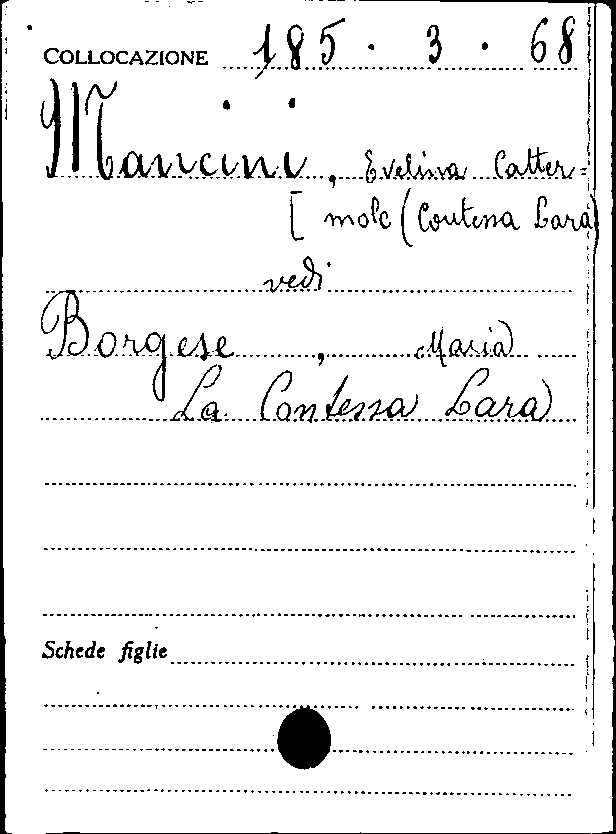 COLLOCAZIONE 185 . 3 . 68
Mancini, Evelina Catter=
[ mole (Contessa Lara)
vedi
Borgese, Maria
La Contessa Lara
Schede figlie